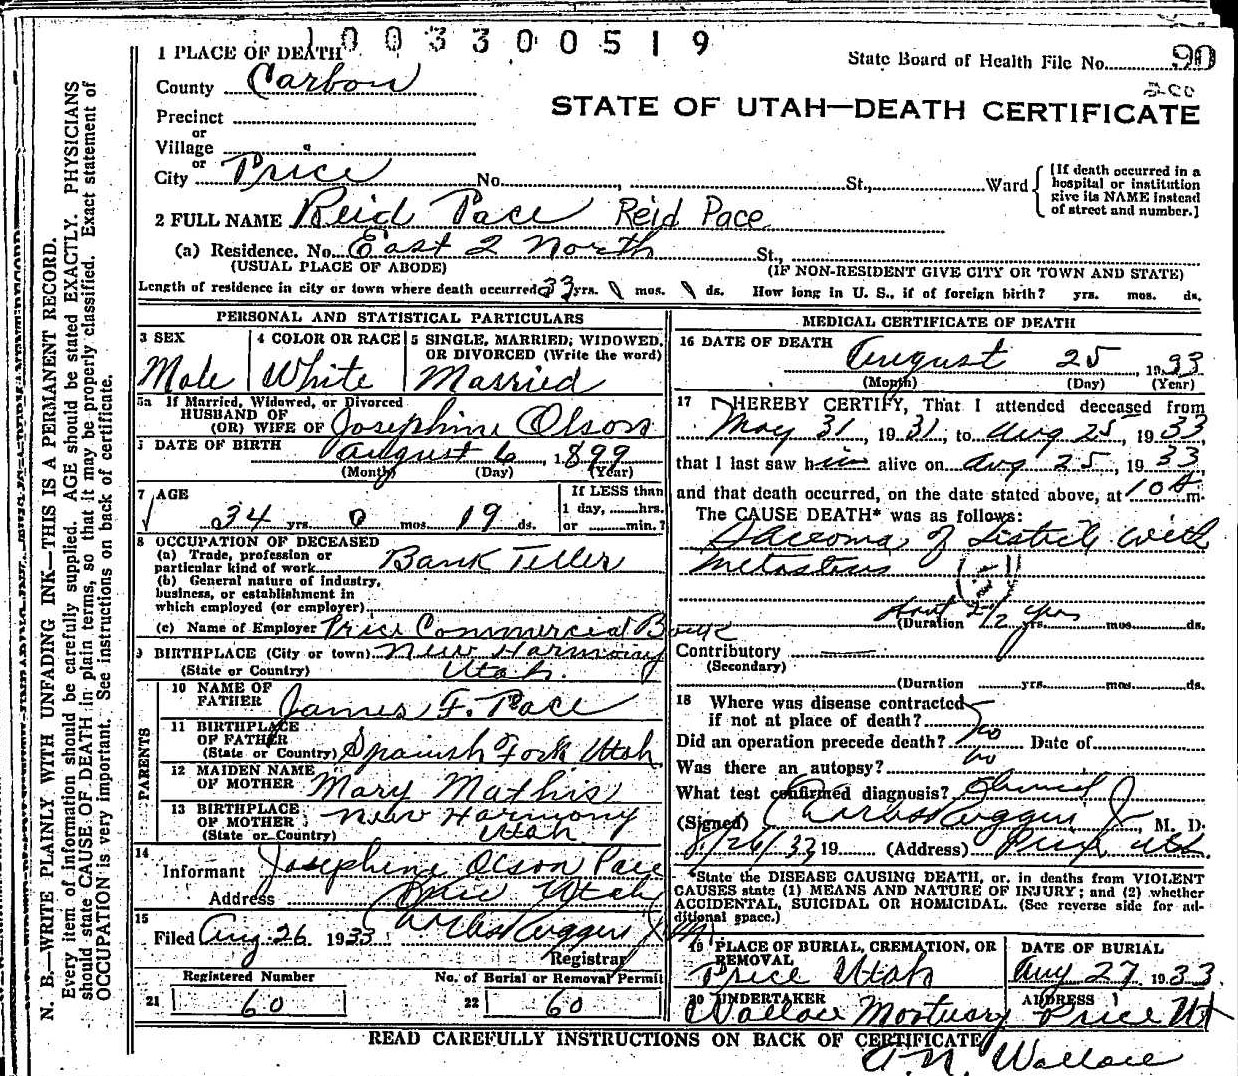 1003300519
1 PLACE OF DEATH
State Board of Health File No. 90
County Carbon
200
STATE OF UTAH—DEATH CERTIFICATE
Precinct
or
Village
or
City Price No. , St., Ward
[If death occurred in a hospital or institution give its NAME instead of street and number.]
2 FULL NAME Reid Pace Reid Pace
(a) Residence. No. East 2 North St.,
(USUAL PLACE OF ABODE) (IF NON-RESIDENT GIVE CITY OR TOWN AND STATE)
Length of residence in city or town where death occurred 33 yrs. mos. ds. How long in U. S., if of foreign birth? yrs. mos. ds.
PERSONAL AND STATISTICAL PARTICULARS
3 SEX 4 COLOR OR RACE 5 SINGLE, MARRIED, WIDOWED,
OR DIVORCED (Write the word)
Male White Married
5a If Married, Widowed, or Divorced
HUSBAND OF
(OR) WIFE OF Josephine Olson
DATE OF BIRTH August 6, 1899
(Month) (Day) (Year)
7 AGE
34 yrs. 0 mos. 19 ds.
If LESS than
1 day, hrs.
or min.?
8 OCCUPATION OF DECEASED
(a) Trade, profession or
particular kind of work Bank Teller
(b) General nature of industry,
business, or establishment in
which employed (or employer)
(c) Name of Employer Price Commercial Bank
9 BIRTHPLACE (City or town) New Harmony
(State or Country) Utah.
PARENTS
10 NAME OF
FATHER James F. Pace
11 BIRTHPLACE
OF FATHER
(State or Country) Spanish Fork Utah.
12 MAIDEN NAME
OF MOTHER Mary Mathis
13 BIRTHPLACE
OF MOTHER New Harmony
(State or Country) Utah
14
Informant Josephine Olson Pace
Address Price Utah
15
Filed Aug. 26 1933
Registrar
Registered Number No. of Burial or Removal Permit
21 60 22 60
MEDICAL CERTIFICATE OF DEATH
16 DATE OF DEATH
August 25, 1933
(Month) (Day) (Year)
17 I HEREBY CERTIFY, That I attended deceased from
May 31, 1931, to Aug 25, 1933,
that I last saw him alive on Aug 25, 1933,
and that death occurred, on the date stated above, at 10 a m.
The CAUSE DEATH* was as follows:
Sarcoma of Testicle with
Metastasis
about 2 1/2 yrs
(Duration yrs. mos. ds.
Contributory
(Secondary)
(Duration yrs. mos. ds.
18 Where was disease contracted
if not at place of death?
Did an operation precede death? no Date of
Was there an autopsy? no
What test confirmed diagnosis? Clinical
(Signed) Charles Ruggeri Jr, M. D.
8/26/33 19 (Address) Price Utah.
*State the DISEASE CAUSING DEATH, or. in deaths from VIOLENT
CAUSES state (1) MEANS AND NATURE OF INJURY; and (2) whether
ACCIDENTAL, SUICIDAL OR HOMICIDAL. (See reverse side for ad-
ditional space.)
19 PLACE OF BURIAL, CREMATION, OR
REMOVAL
Price Utah
DATE OF BURIAL
Aug 27, 1933
20 UNDERTAKER
Wallace Mortuary
ADDRESS
Price Ut
READ CAREFULLY INSTRUCTIONS ON BACK OF CERTIFICATE
A. N. Wallace
N. B.—WRITE PLAINLY WITH UNFADING INK—THIS IS A PERMANENT RECORD.
Every item of information should be carefully supplied. AGE should be stated EXACTLY. PHYSICIANS
should state CAUSE OF DEATH in plain terms, so that it may be properly classified. Exact statement of
OCCUPATION is very important. See instructions on back of certificate.